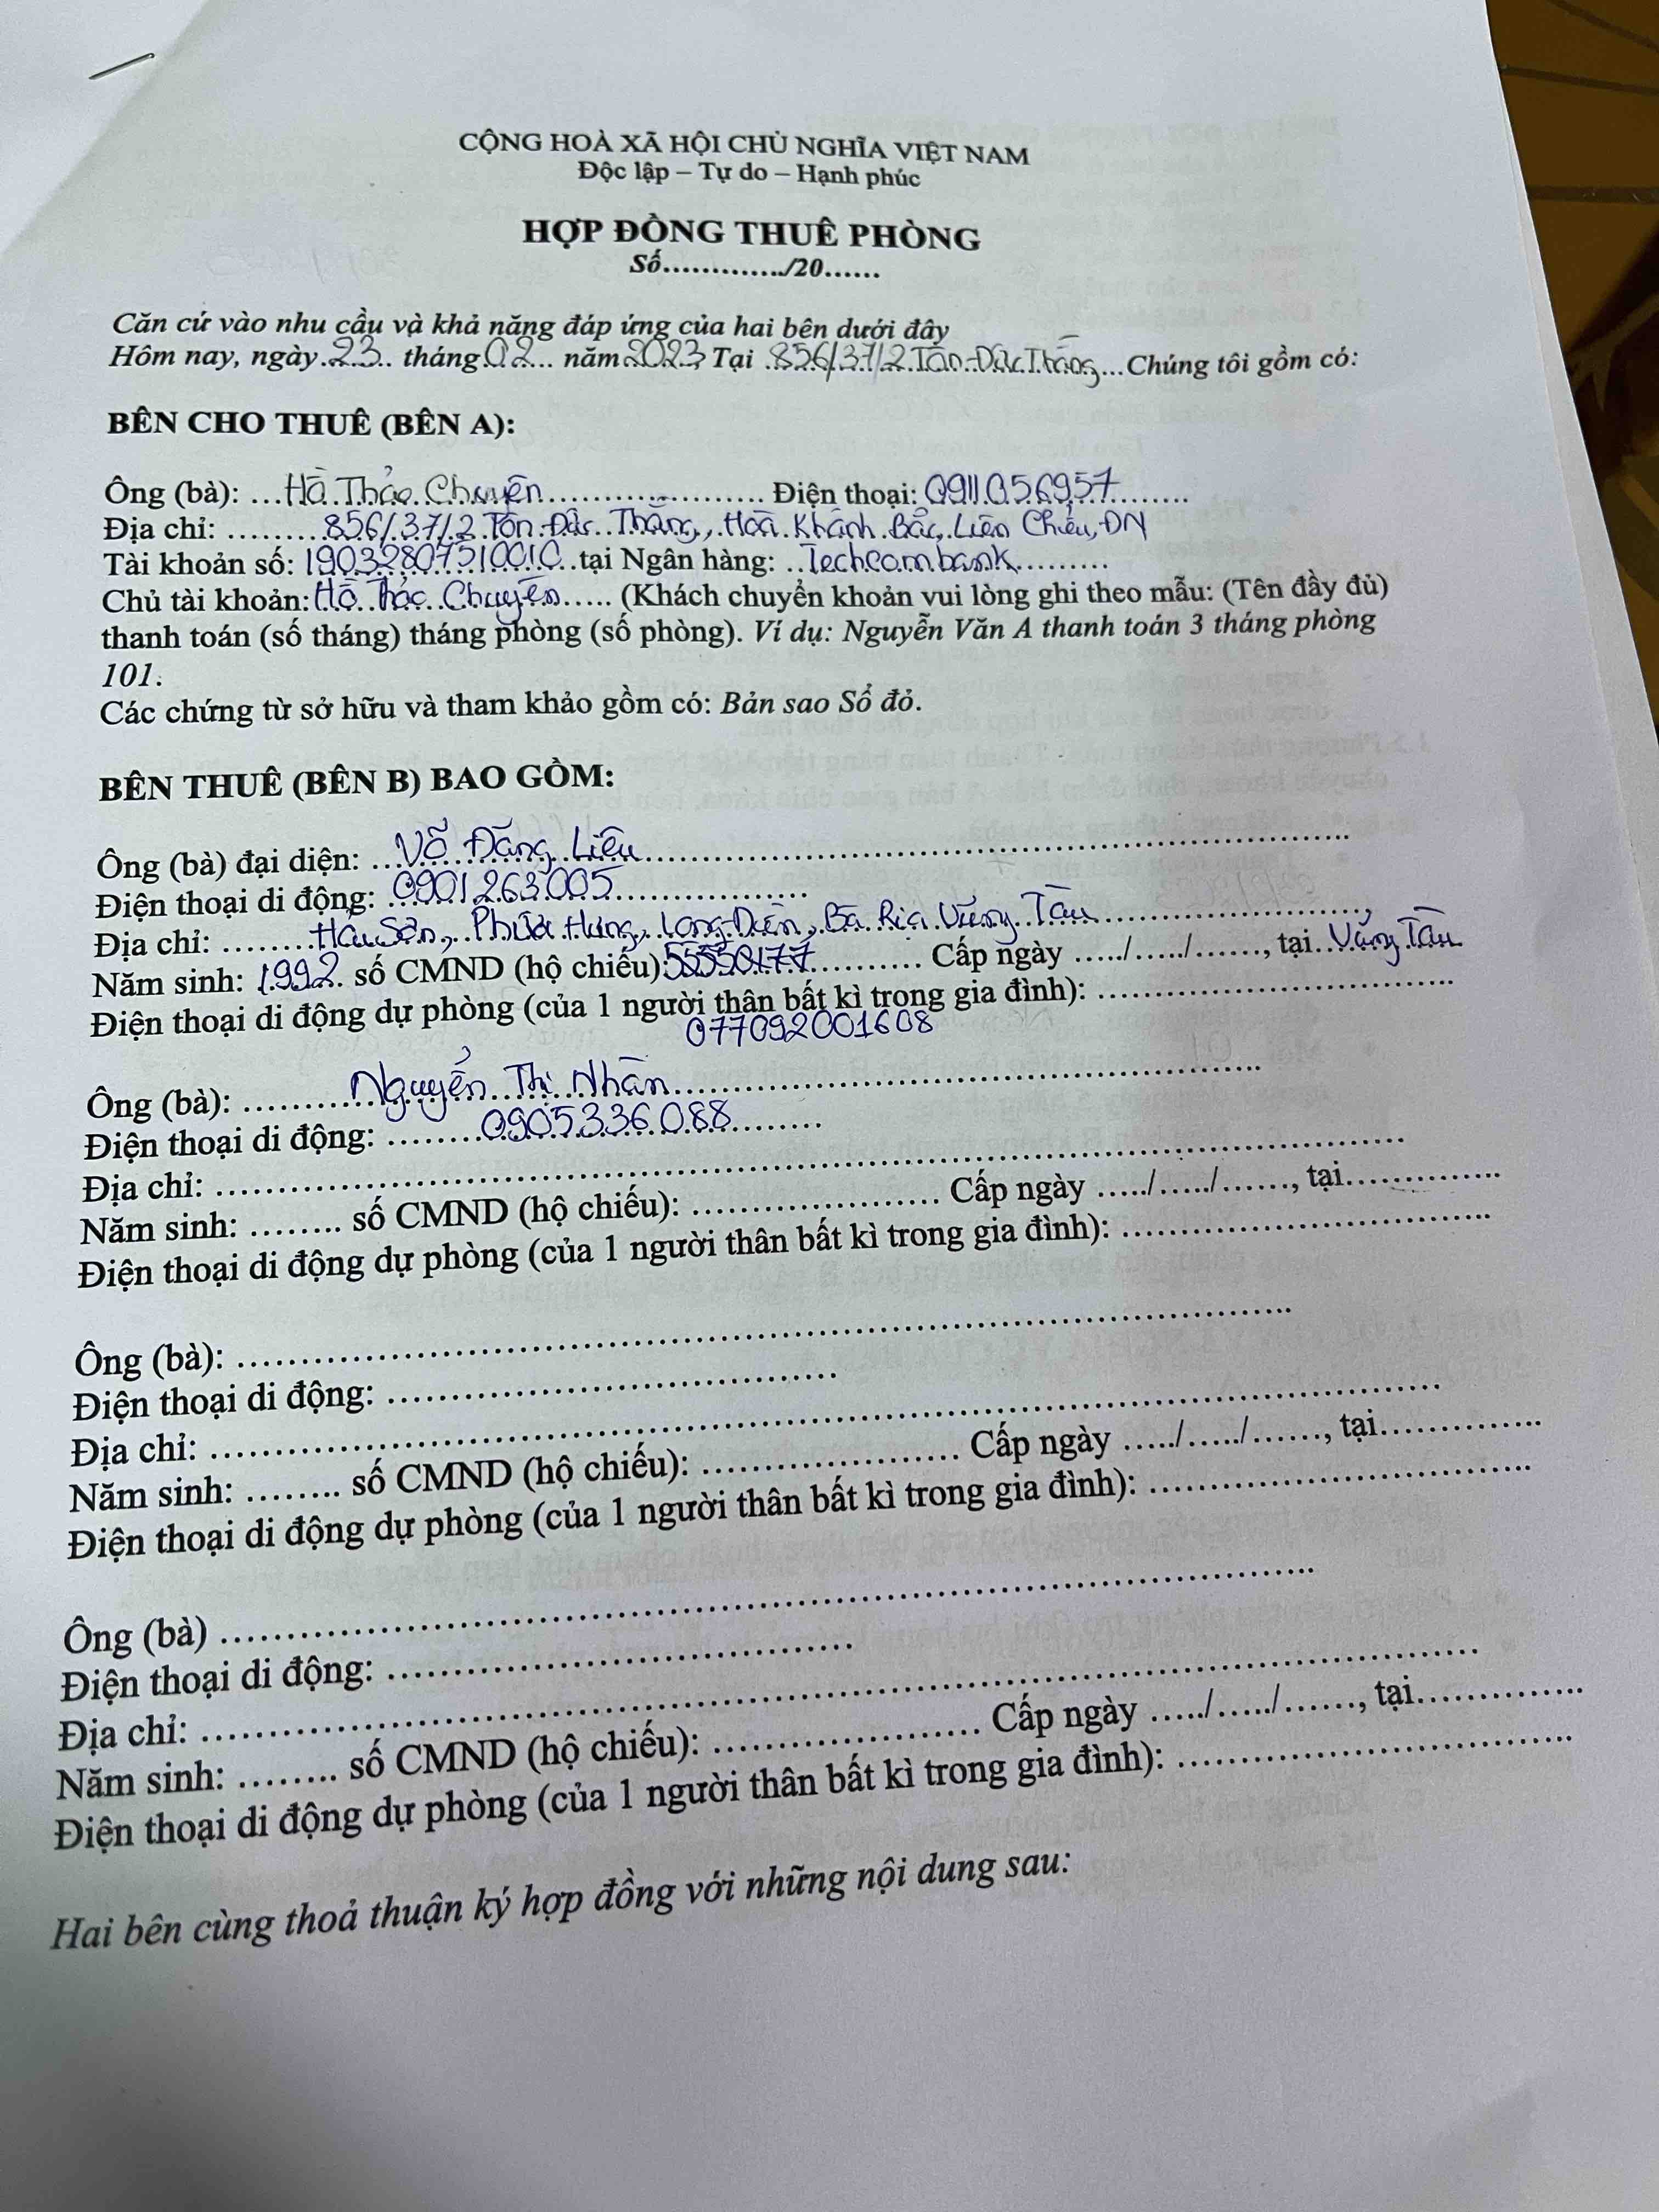 CỘNG HOÀ XÃ HỘI CHỦ NGHĨA VIỆT NAM
Độc lập – Tự do – Hạnh phúc
HỢP ĐỒNG THUÊ PHÒNG
Số............./20......
Căn cứ vào nhu cầu và khả năng đáp ứng của hai bên dưới đây
Hôm nay, ngày 23 tháng 02 năm 2023 Tại 856/37/2 Tôn Đức Thắng Chúng tôi gồm có:
BÊN CHO THUÊ (BÊN A):
Ông (bà): Hà Thảo Chuyên Điện thoại: 0911056957
Địa chỉ: 856/37/2 Tôn Đức Thắng, Hoà Khánh Bắc, Liên Chiểu, ĐN
Tài khoản số: 19032807510010 tại Ngân hàng: Techcombank
Chủ tài khoản: Hà Thảo Chuyên (Khách chuyển khoản vui lòng ghi theo mẫu: (Tên đầy đủ)
thanh toán (số tháng) tháng phòng (số phòng). Ví dụ: Nguyễn Văn A thanh toán 3 tháng phòng
101.
Các chứng từ sở hữu và tham khảo gồm có: Bản sao Sổ đỏ.
BÊN THUÊ (BÊN B) BAO GỒM:
Ông (bà) đại diện: Võ Đăng Liêu
Điện thoại di động: 0901263005
Địa chỉ: Hải Sơn, Phước Hưng, Long Điền, Bà Rịa Vũng Tàu
Năm sinh: 1992 số CMND (hộ chiếu): Cấp ngày ...../...../......, tại Vũng Tàu
Điện thoại di động dự phòng (của 1 người thân bất kì trong gia đình): ..............................
077092001608
Ông (bà): Nguyễn Thị Nhàn
Điện thoại di động: 0905336088
Địa chỉ: ..............................
Năm sinh: ........ số CMND (hộ chiếu): .................... Cấp ngày ...../...../......, tại..............
Điện thoại di động dự phòng (của 1 người thân bất kì trong gia đình): ..............................
Ông (bà): ..............................
Điện thoại di động: ..............................
Địa chỉ: ..............................
Năm sinh: ........ số CMND (hộ chiếu): .................... Cấp ngày ...../...../......, tại..............
Điện thoại di động dự phòng (của 1 người thân bất kì trong gia đình): ..............................
Ông (bà) ..............................
Điện thoại di động: ..............................
Địa chỉ: ..............................
Năm sinh: ........ số CMND (hộ chiếu): .................... Cấp ngày ...../...../......, tại..............
Điện thoại di động dự phòng (của 1 người thân bất kì trong gia đình): ..............................
Hai bên cùng thoả thuận ký hợp đồng với những nội dung sau: